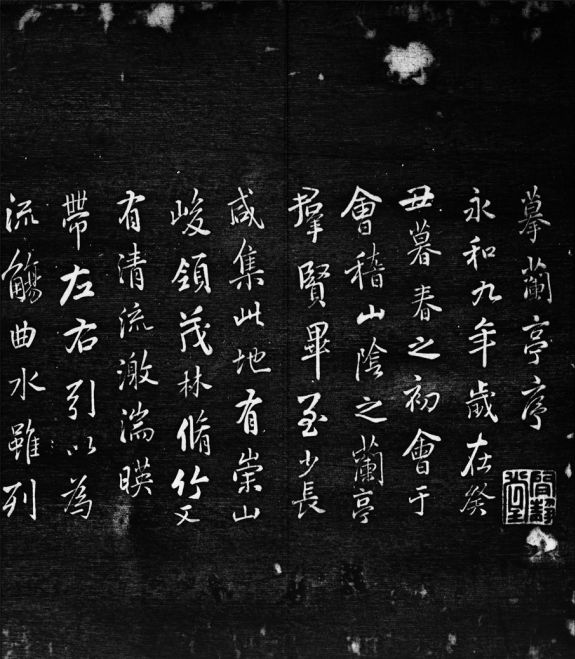 摹蘭亭序
永和九年歲在癸
丑暮春之初會于
會稽山陰之蘭亭
羣賢畢至少長
咸集此地有崇山
峻領茂林脩竹又
有清流激湍暎
帶左右引以為
流觴曲水雖列